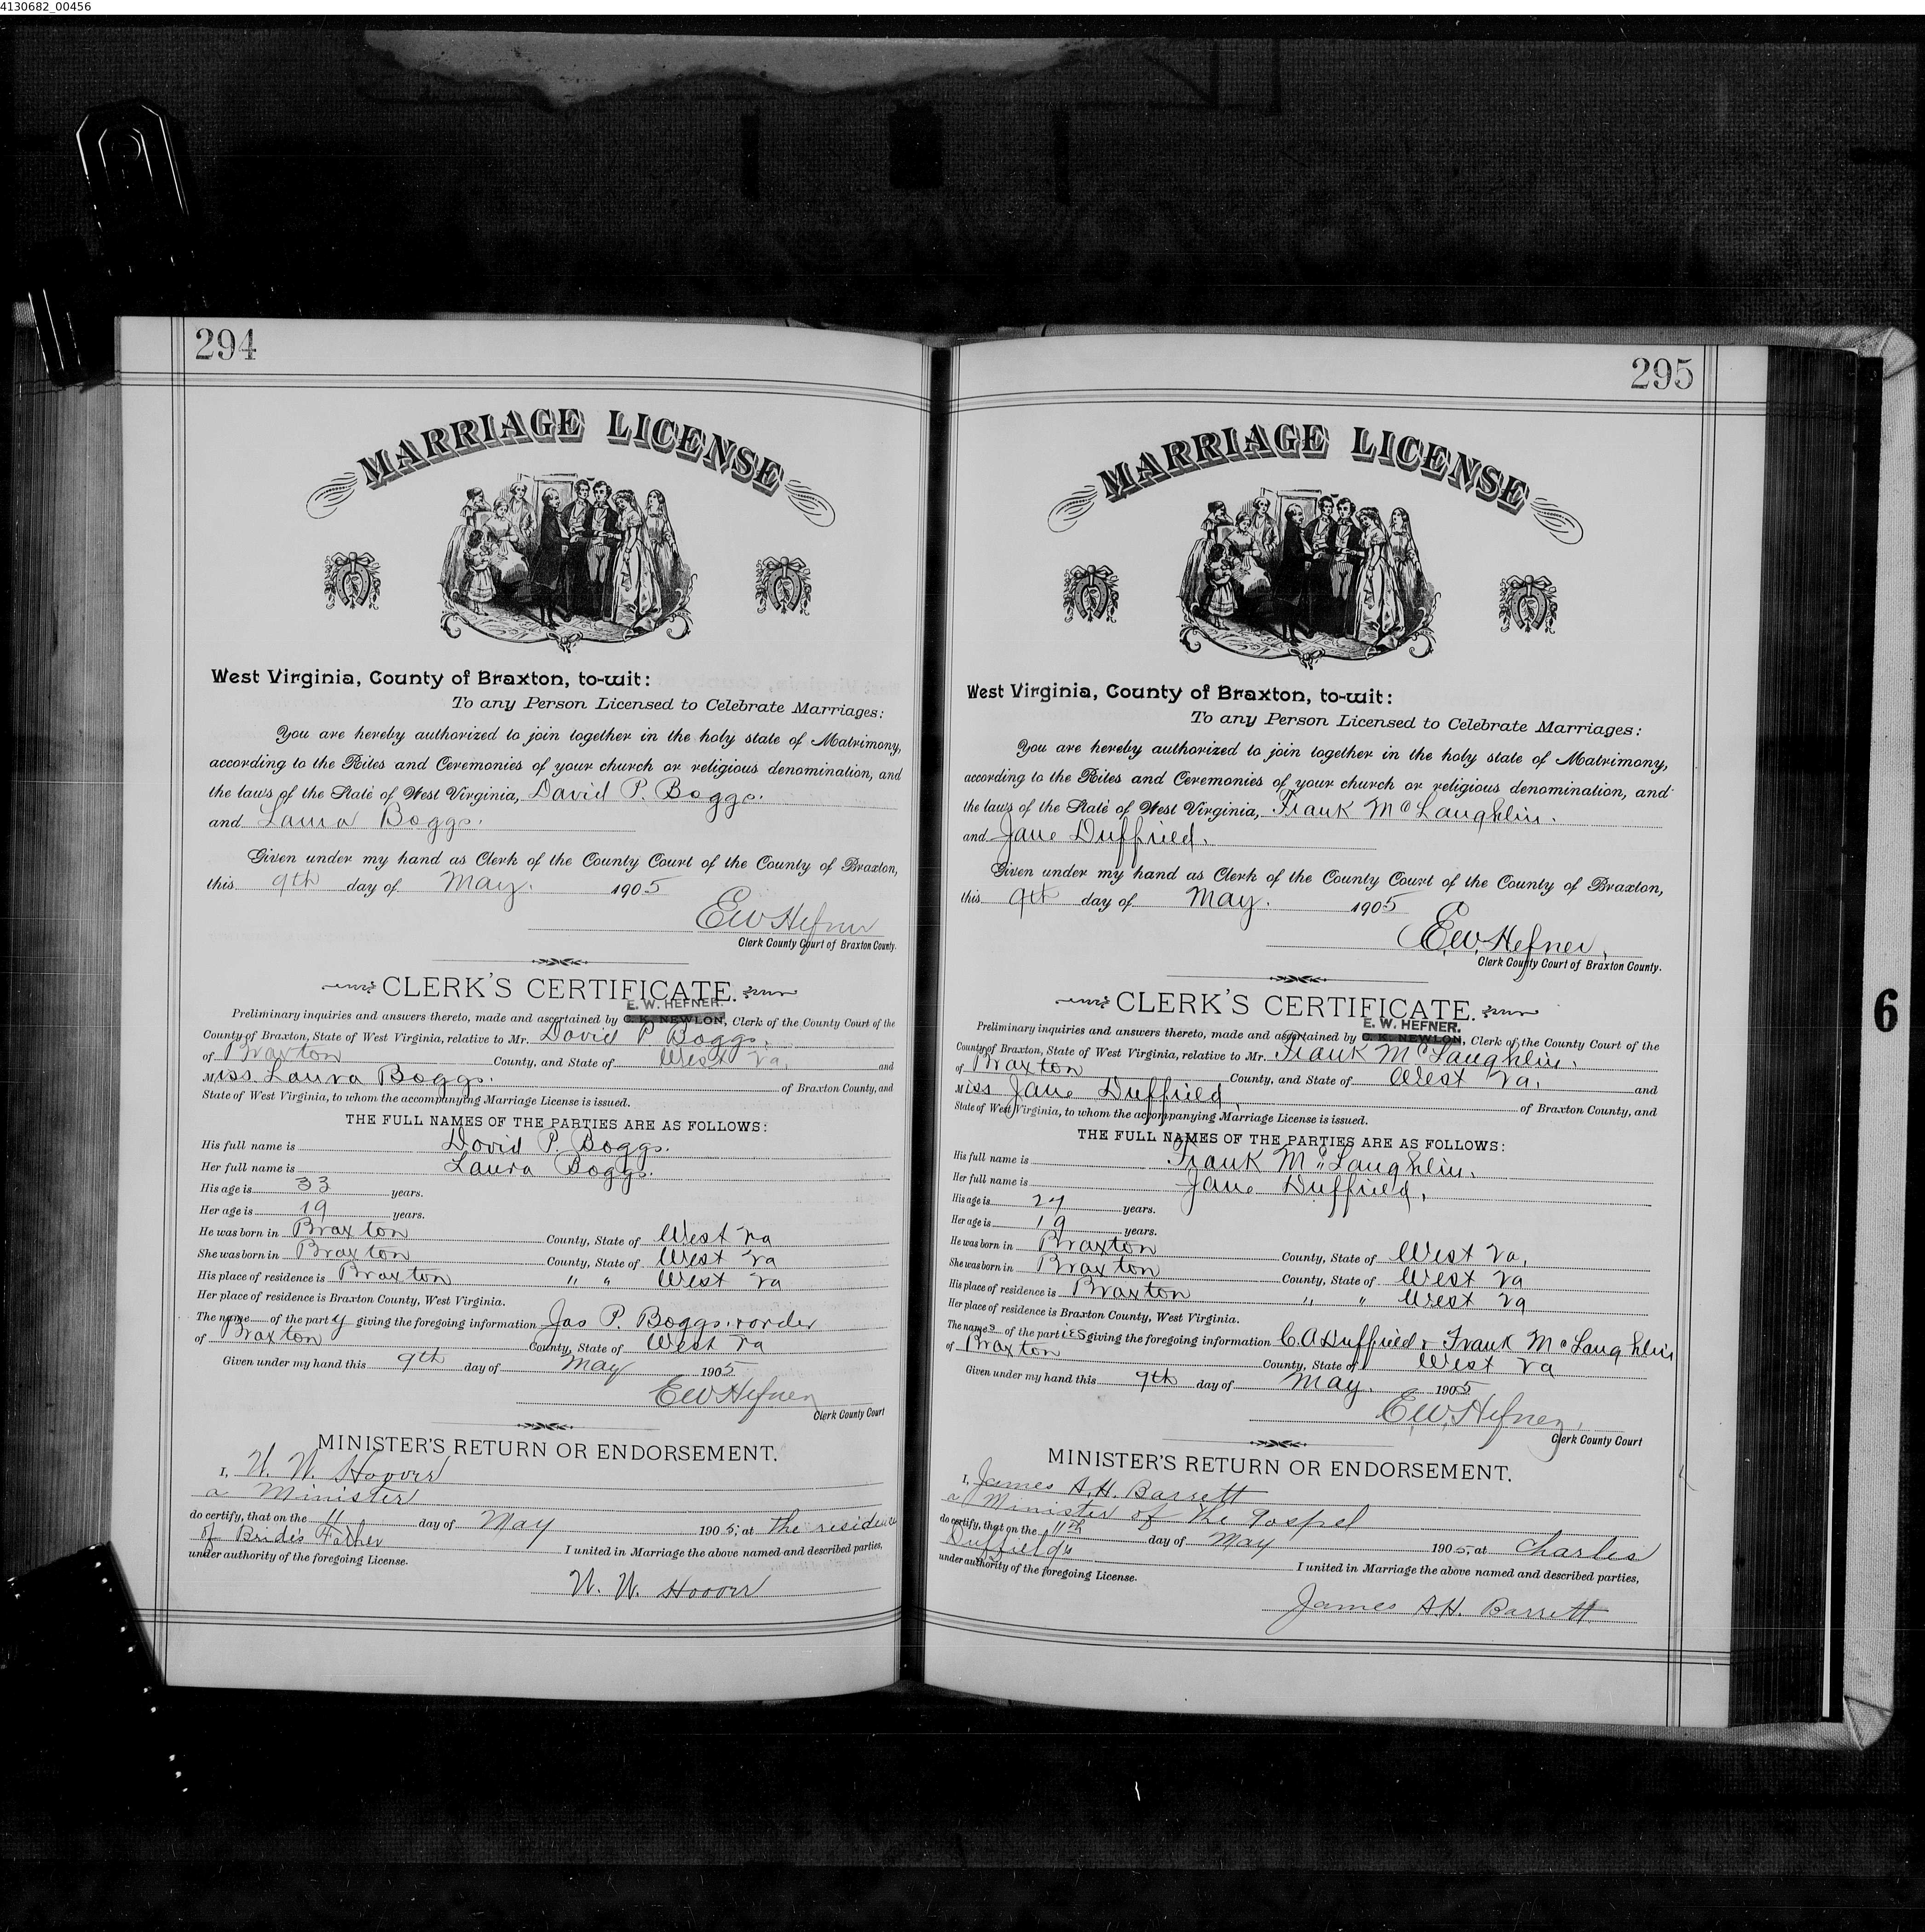 4130682_00456
294
MARRIAGE LICENSE
West Virginia, County of Braxton, to-wit:
To any Person Licensed to Celebrate Marriages:
You are hereby authorized to join together in the holy state of Matrimony,
according to the Rites and Ceremonies of your church or religious denomination, and
the laws of the State of West Virginia, David P. Boggs.
and Laura Boggs.
Given under my hand as Clerk of the County Court of the County of Braxton,
this 9th day of May. 1905
E W Hefner
Clerk County Court of Braxton County.
CLERK'S CERTIFICATE.
E. W. HEFNER.
Preliminary inquiries and answers thereto, made and ascertained by C. K. NEWLON, Clerk of the County Court of the
County of Braxton, State of West Virginia, relative to Mr. David P Boggs.
of Braxton County, and State of West Va. and
Miss Laura Boggs. of Braxton County, and
State of West Virginia, to whom the accompanying Marriage License is issued.
THE FULL NAMES OF THE PARTIES ARE AS FOLLOWS:
His full name is David P. Boggs.
Her full name is Laura Boggs.
His age is 33 years.
Her age is 19 years.
He was born in Braxton County, State of West Va
She was born in Braxton County, State of West Va
His place of residence is Braxton " " West Va
Her place of residence is Braxton County, West Virginia.
The name of the party giving the foregoing information Jas P. Boggs. & order
of Braxton County, State of West Va
Given under my hand this 9th day of May 1905
E W Hefner
Clerk County Court
MINISTER'S RETURN OR ENDORSEMENT.
I, W. W. Hoover
a Minister
do certify, that on the 11 day of May 1905, at the residence
of Brides Father I united in Marriage the above named and described parties,
under authority of the foregoing License.
W. W. Hoover
295
MARRIAGE LICENSE
West Virginia, County of Braxton, to-wit:
To any Person Licensed to Celebrate Marriages:
You are hereby authorized to join together in the holy state of Matrimony,
according to the Rites and Ceremonies of your church or religious denomination, and
the laws of the State of West Virginia, Frank McLaughlin.
and Jane Duffield.
Given under my hand as Clerk of the County Court of the County of Braxton,
this 9th day of May. 1905
E. W. Hefner.
Clerk County Court of Braxton County.
CLERK'S CERTIFICATE.
E. W. HEFNER.
Preliminary inquiries and answers thereto, made and ascertained by C. K. NEWLON, Clerk of the County Court of the
County of Braxton, State of West Virginia, relative to Mr. Frank McLaughlin.
of Braxton County, and State of West Va. and
Miss Jane Duffield. of Braxton County, and
State of West Virginia, to whom the accompanying Marriage License is issued.
THE FULL NAMES OF THE PARTIES ARE AS FOLLOWS:
His full name is Frank McLaughlin.
Her full name is Jane Duffield.
His age is years.
Her age is 19 years.
He was born in Braxton County, State of West Va.
She was born in Braxton County, State of West Va
His place of residence is Braxton " " West Va
Her place of residence is Braxton County, West Virginia.
The names of the parties giving the foregoing information C. A Duffield & Frank McLaughlin
of Braxton County, State of West Va
Given under my hand this 9th day of May. 1905
E. W. Hefner.
Clerk County Court
MINISTER'S RETURN OR ENDORSEMENT.
I, James A. H. Barrett
a Minister of the Gospel
do certify, that on the 11th day of May 1905, at Charles
Duffields I united in Marriage the above named and described parties,
under authority of the foregoing License.
James A. H. Barrett
6